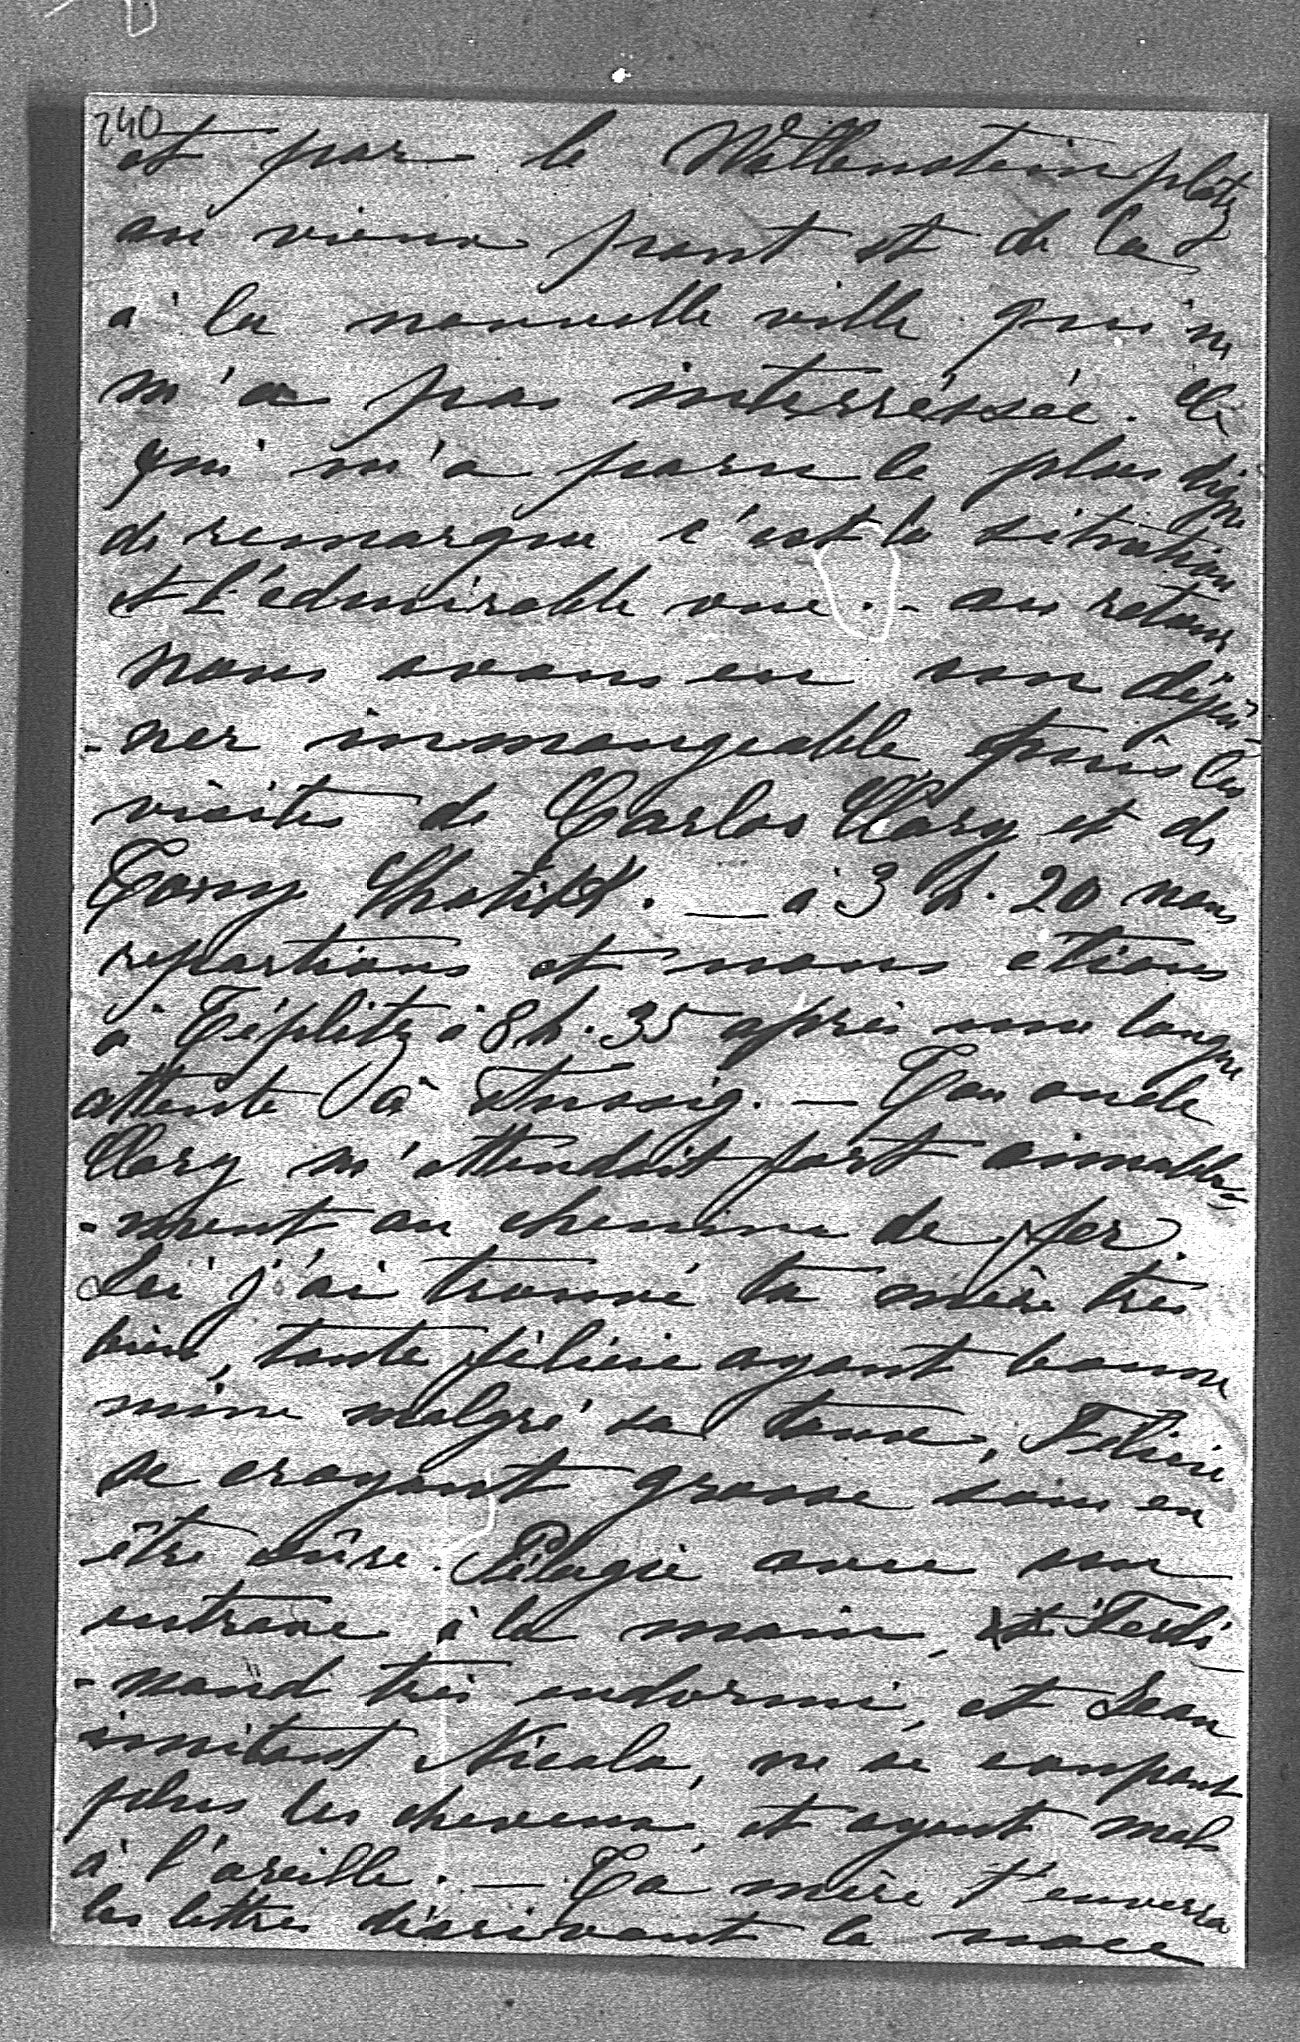 240
et par le Wallensteinplatz
au vieux pont et de la
à la nouvelle ville qui ne
m'a pas interréssée. Ce
qui m'a paru le plus digne
de remarque c'est la situation
et l'admirable vue. - au retour
nous avons eu un déjeu-
-ner immangeable puis les
visites de Carlos Clary et de
à 3 h. 20 nous
repartions et nous étions
à Téplitz à 8 h. 35 après une longue
attente à Aussig. — Ton oncle
Clary m'attendait fort aimable-
-ment au chemin de fer.
Ici j'ai trouvé ta mère très
bien, tante félicie ayant bonne
mine malgré sa toux, Félicie
se croyant grosse sans en
être sûre. Pélagie avec une
entorse à la main, et Ferdi-
-nand très endormi, et Jean
imitant Nicola, ne se coupant
plus les cheveux, et ayant mal
à l'oreille. — Ta mère t'enverra
les lettres décrivant la noce